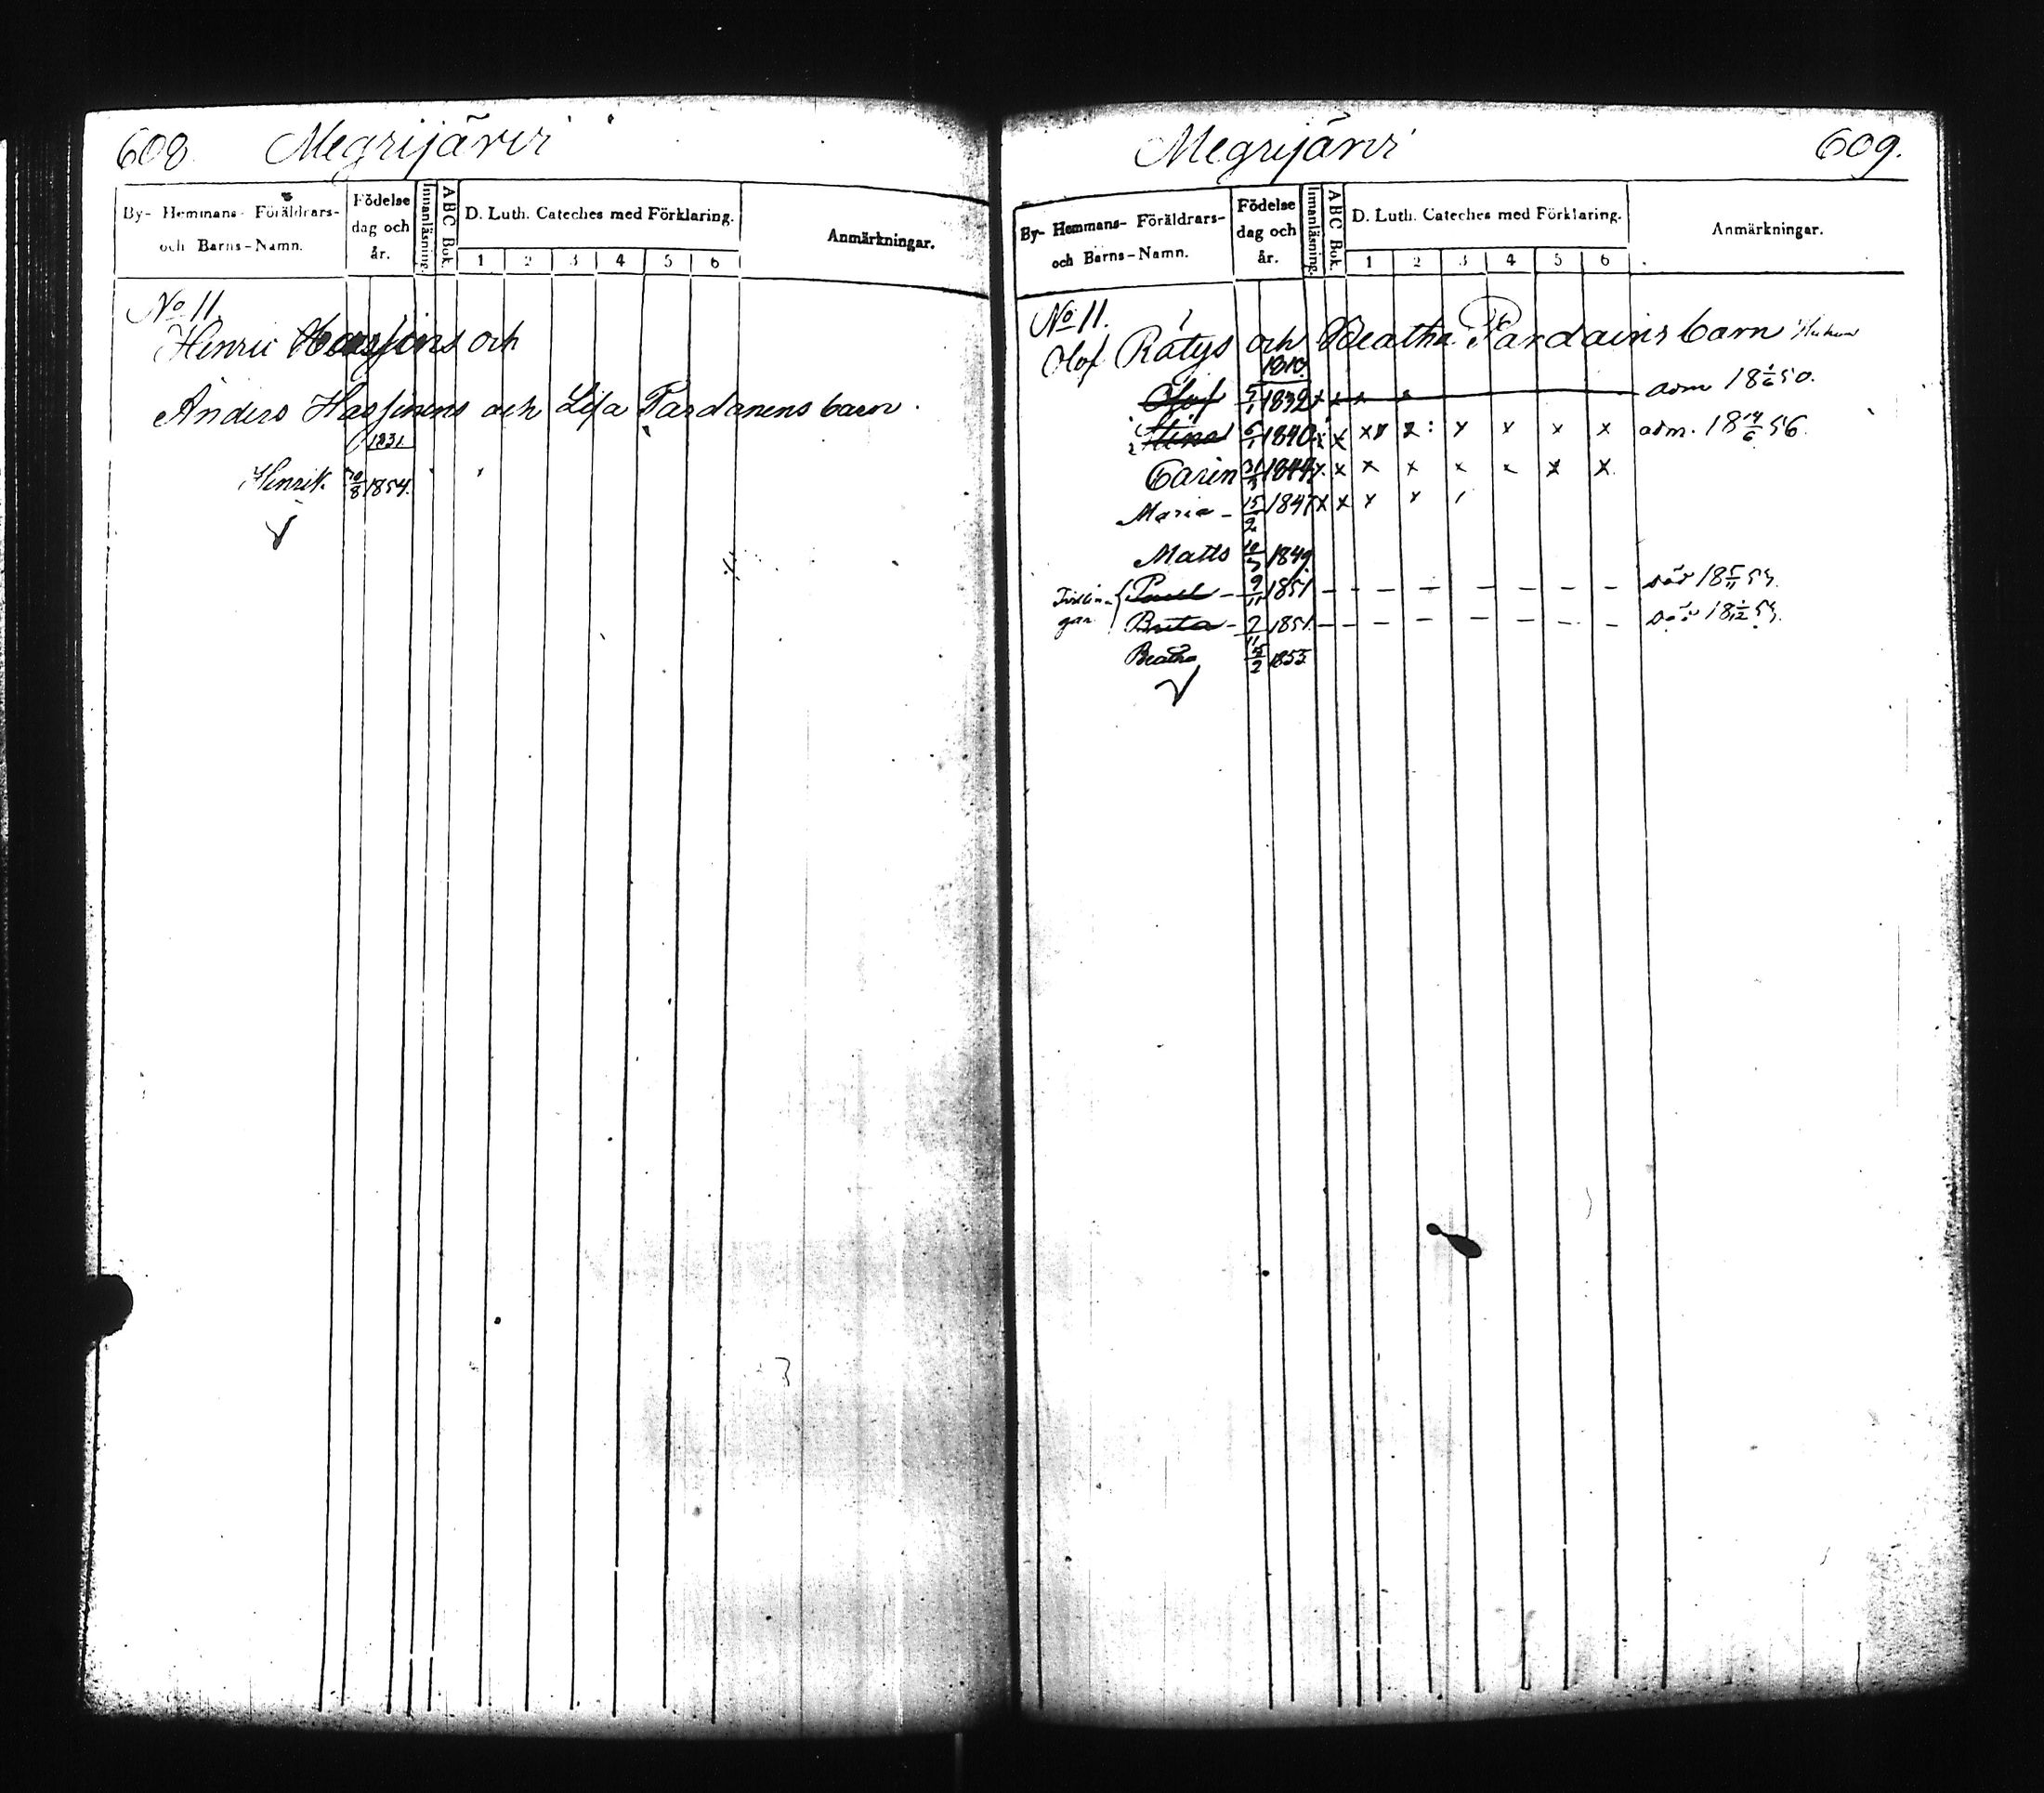 608. Megrijärvi
By- Hemmans- Föräldrars- och Barns-Namn.
Födelse dag och år.
Innanläsning.
ABC Bok.
D. Luth. Cateches med Förklaring.
1 2 3 4 5 6
Anmärkningar.
No 11.
Henric Hassinens och
Anders Hassinens och Lisa Pardanens barn.
1831
Henrik 20/8 1854.
Megrijärvi 609.
By- Hemmans- Föräldrars- och Barns-Namn.
Födelse dag och år.
Innanläsning.
ABC Bok.
D. Luth. Cateches med Förklaring.
1 2 3 4 5 6
Anmärkningar.
No 11.
Olof Rätys och Beatha Pardains barn
1810.
Olof 5/1 1832 x x x x adm 18 1/6 50.
Stina 6/1 1840 x x x x x x x x adm. 18 14/6 56.
Carin 31/3 1844 x x x x x x x x
Maria - 15/2 1847 x x x x
Matts 10/3 1849
Tvillingar { Paul - 9/11 1851 - - - - - - - - död 18 5/11 54.
Brita - 2/11 1851 - - - - - - - - död 18 1/12 54.
Beatha 15/2 1855